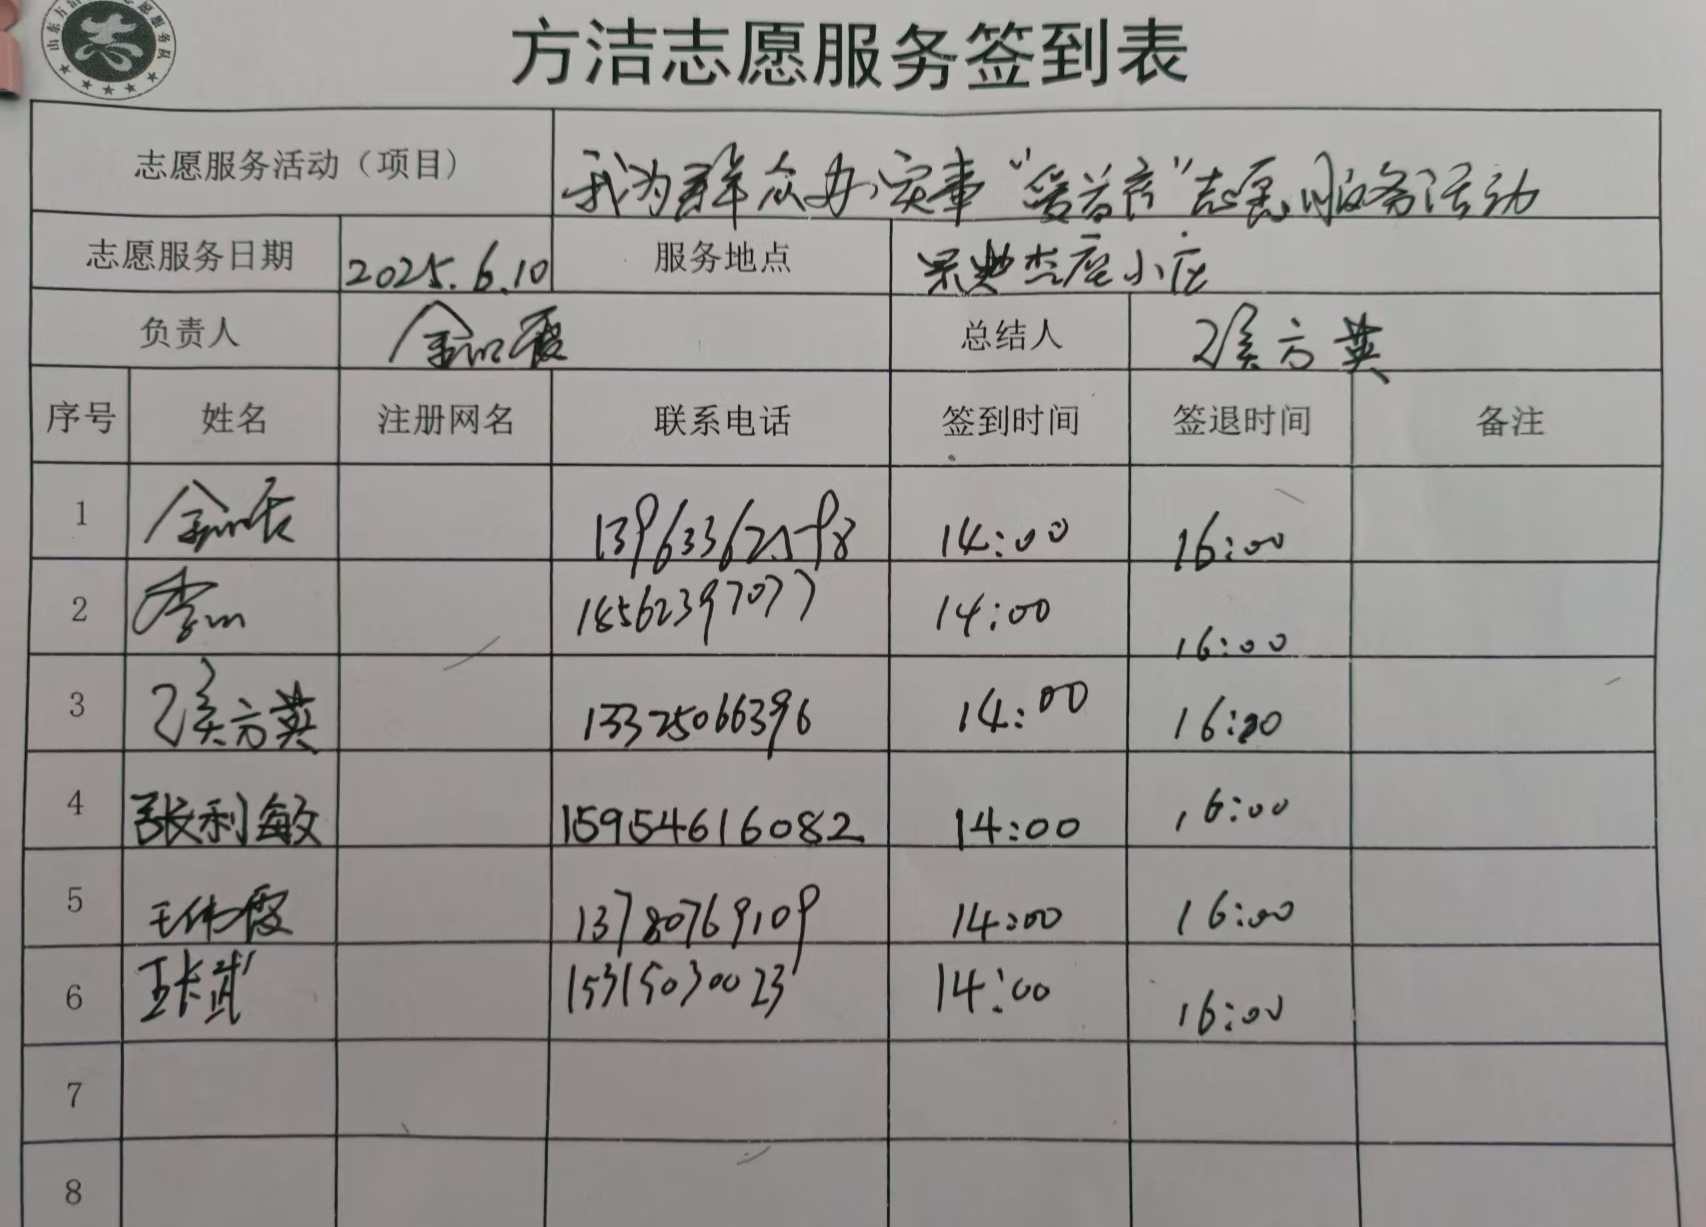 方洁志愿服务签到表
志愿服务活动（项目） 我为群众办实事“爱益行”志愿服务活动
志愿服务日期 2025.6.10 服务地点
负责人 总结人 侯方英
序号 姓名 注册网名 联系电话 签到时间 签退时间 备注
1 14:00 16:00
2 李 18562397077 14:00 16:00
3 侯方英 13325066396 14:00 16:00
4 张利敏 15954616082 14:00 16:00
5 王伟霞 13780769109 14:00 16:00
6 15315030023 14:00 16:00
7
8